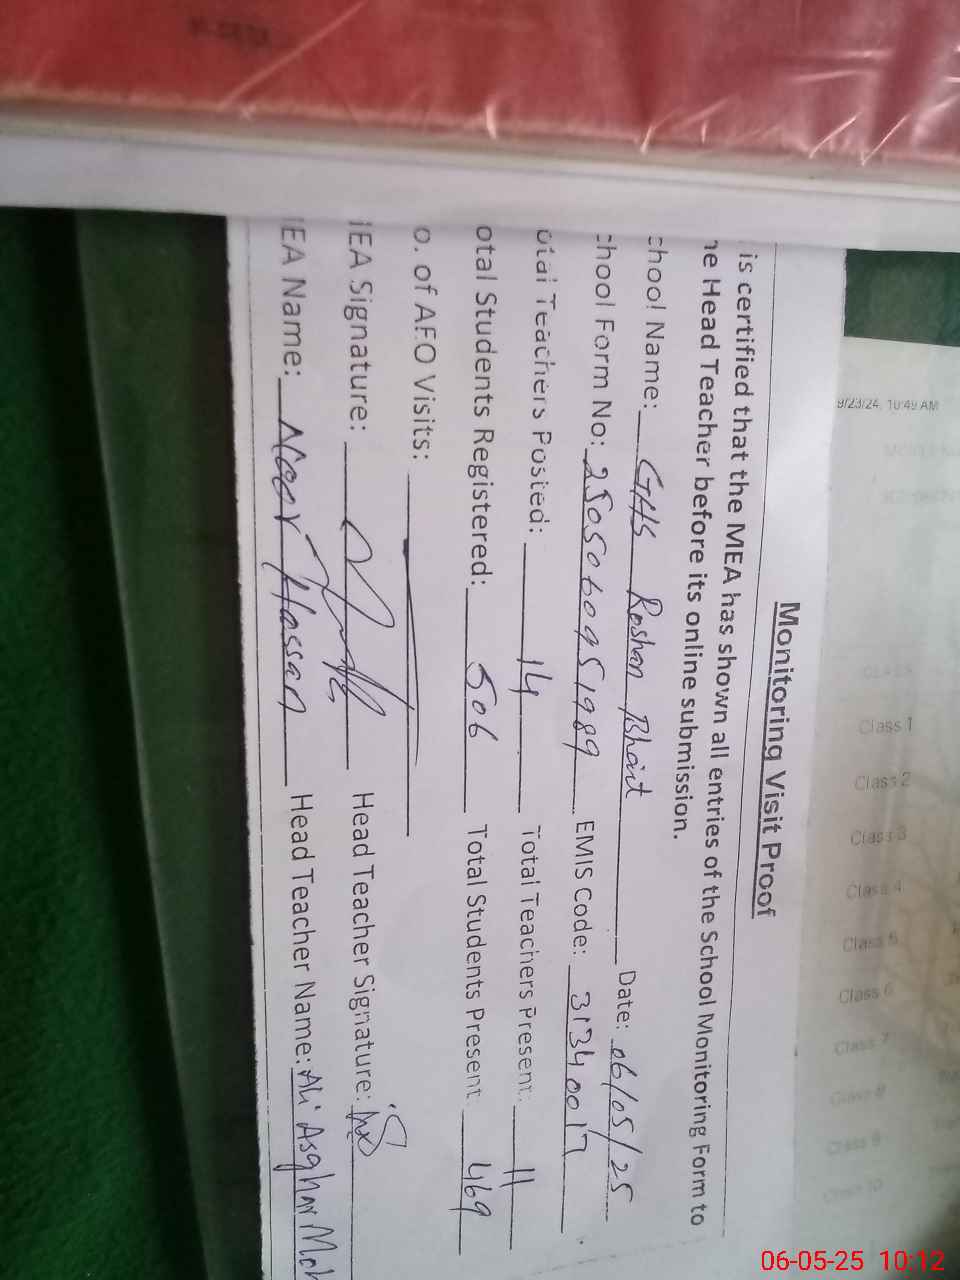 Monitoring Visit Proof
is certified that the MEA has shown all entries of the School Monitoring Form to
he Head Teacher before its online submission.
chool Name: GHS Roshan Bhait Date: 06/05/25
chool Form No: 2505060951989 EMIS Code: 31340017
otal Teachers Posted: 14 Total Teachers Present: 11
otal Students Registered: 506 Total Students Present: 469
o. of AEO Visits:
IEA Signature: Head Teacher Signature:
IEA Name: Noor Hassan Head Teacher Name: Ali Asghar Moh
9/23/24, 10:49 AM
Class 1
Class 2
Class 3
Class 4
Class 5
Class 6
Class 7
Class 8
Class 9
Class 10
06-05-25 10:12